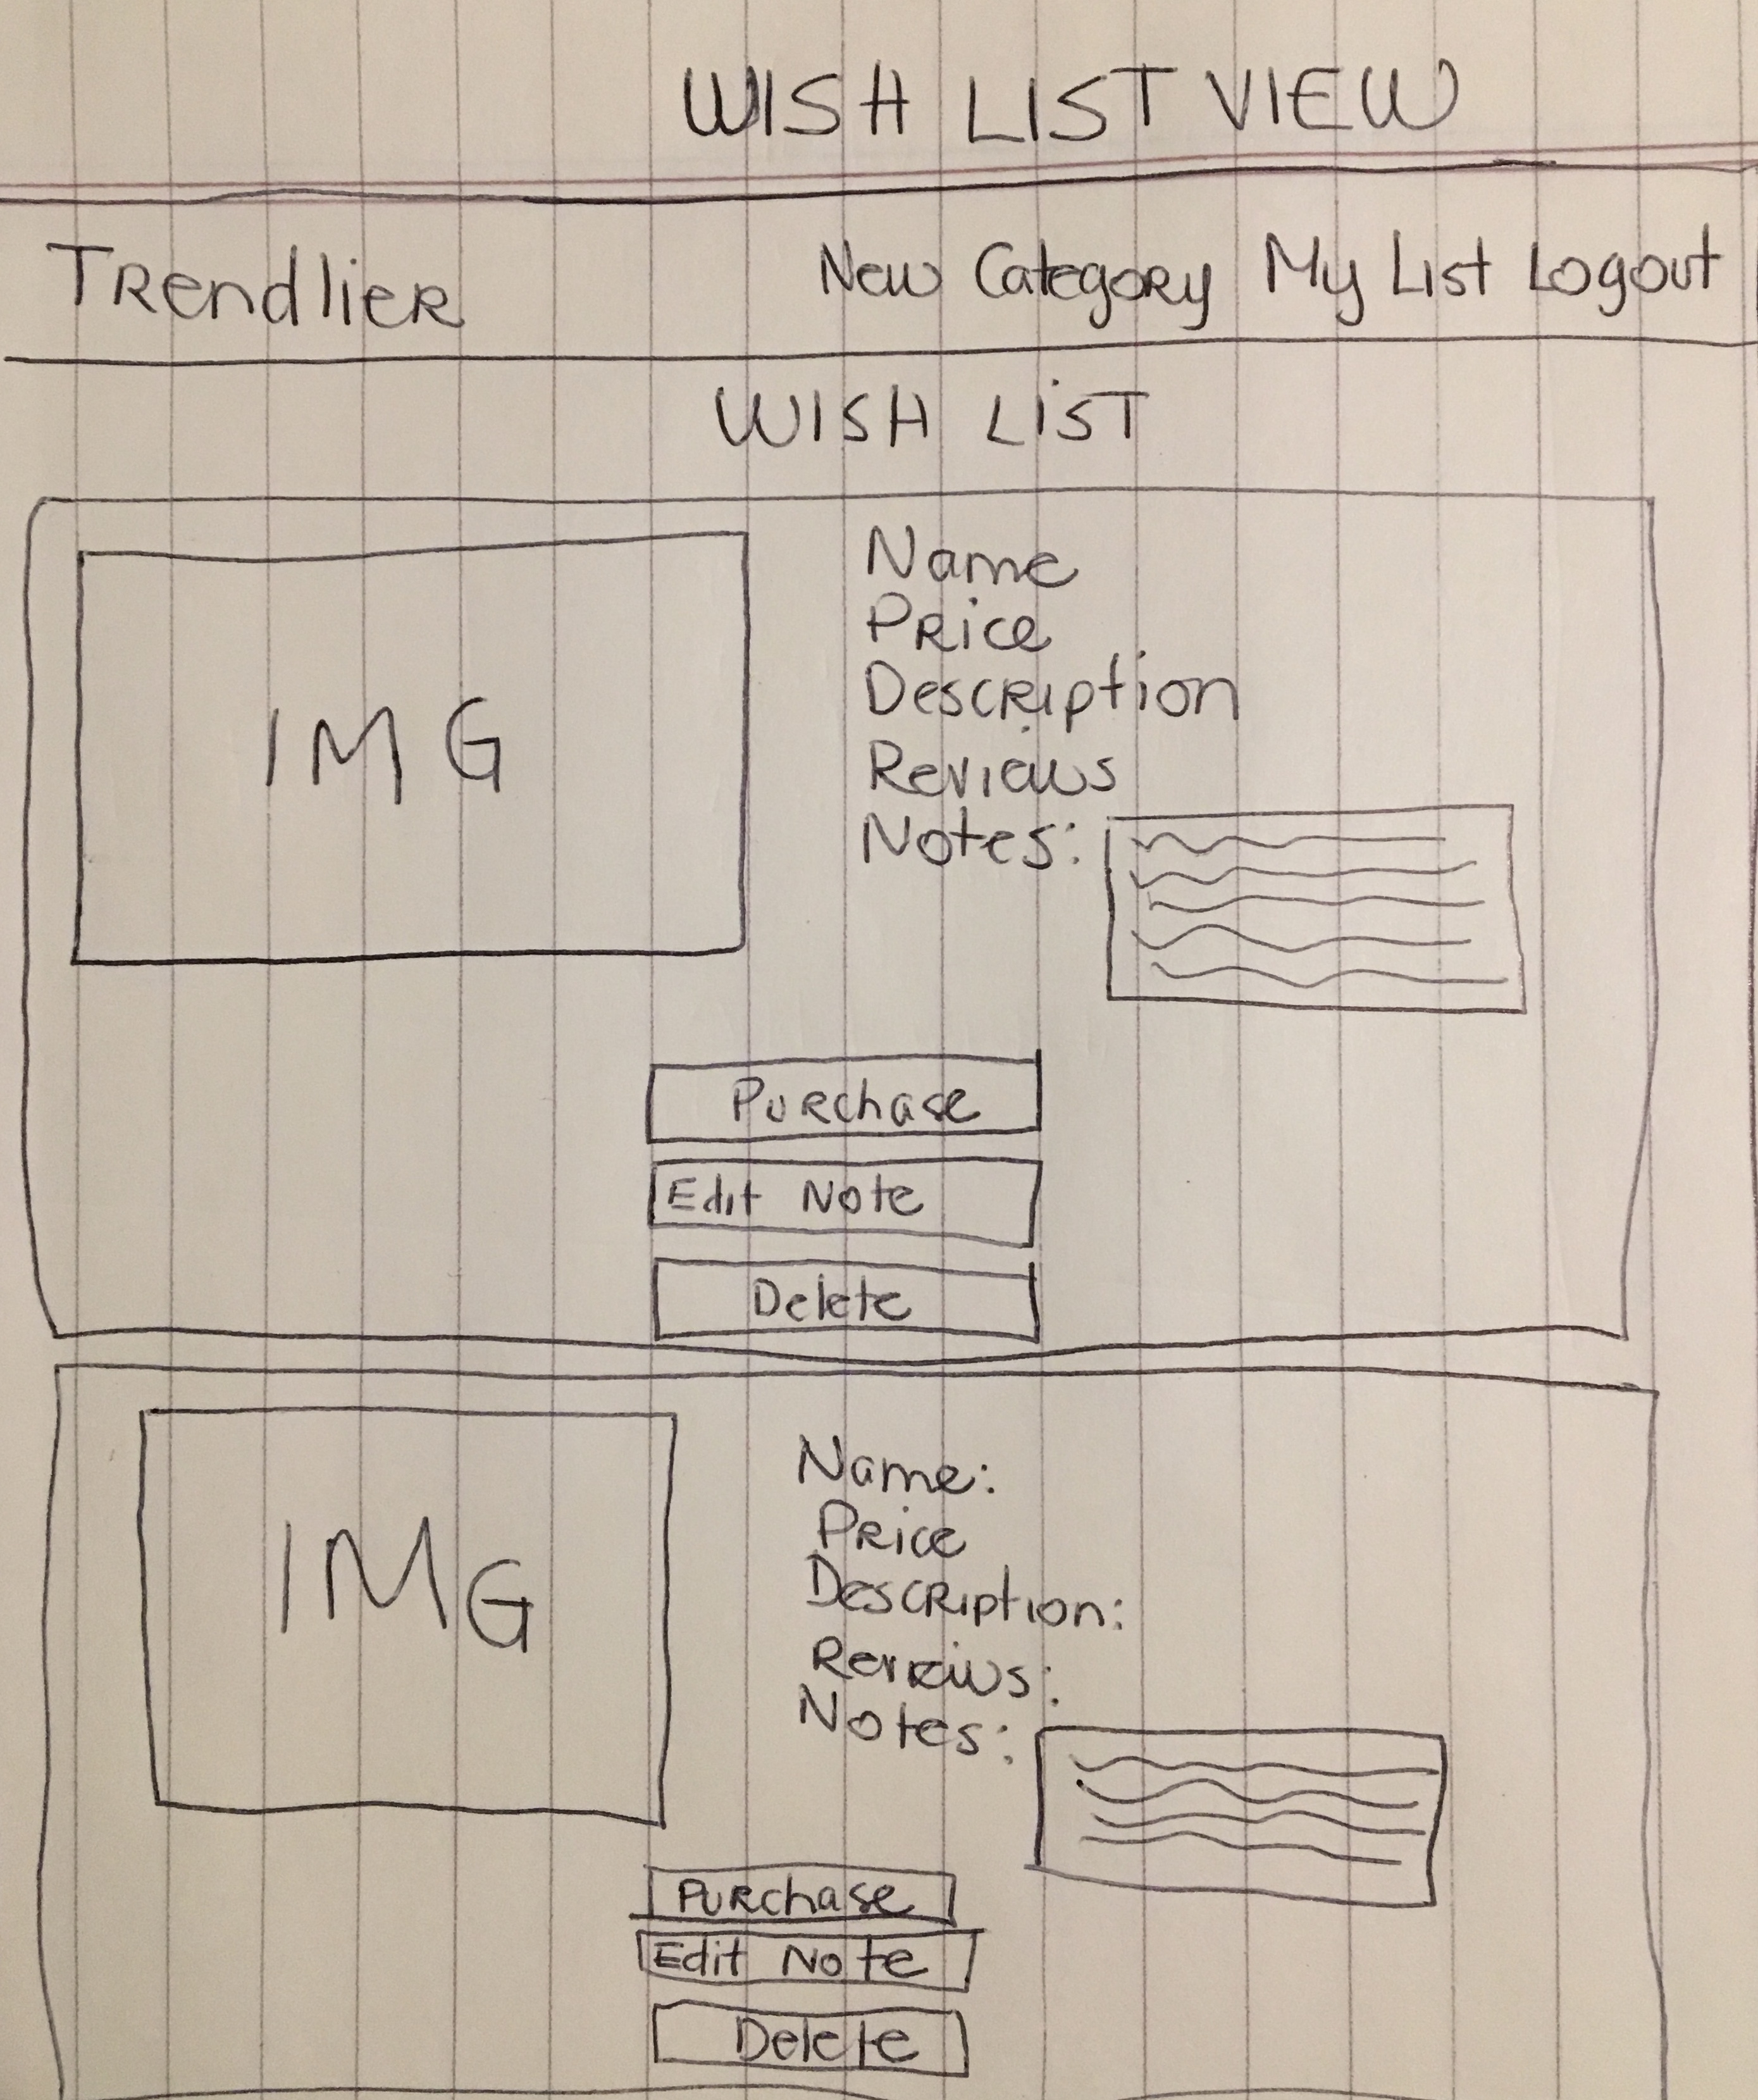 WISH LIST VIEW
Trendlier New Category My List Logout
WISH LIST
IMG
Name
Price
Description
Reviews
Notes:
Purchase
Edit Note
Delete
IMG
Name:
Price
Description:
Reviews:
Notes:
Purchase
Edit Note
Delete